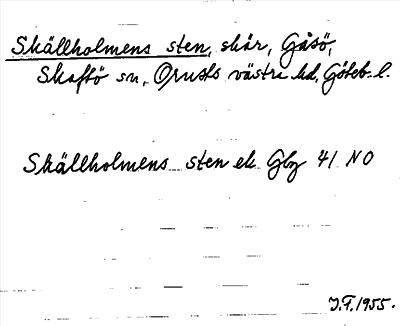 Skällholmens sten, skär, Gåsö,
Skaftö sn, Orusts västra hd, Göteb. l.
Skällholmens sten ek Gbg 41 NO
J.F. 1955.